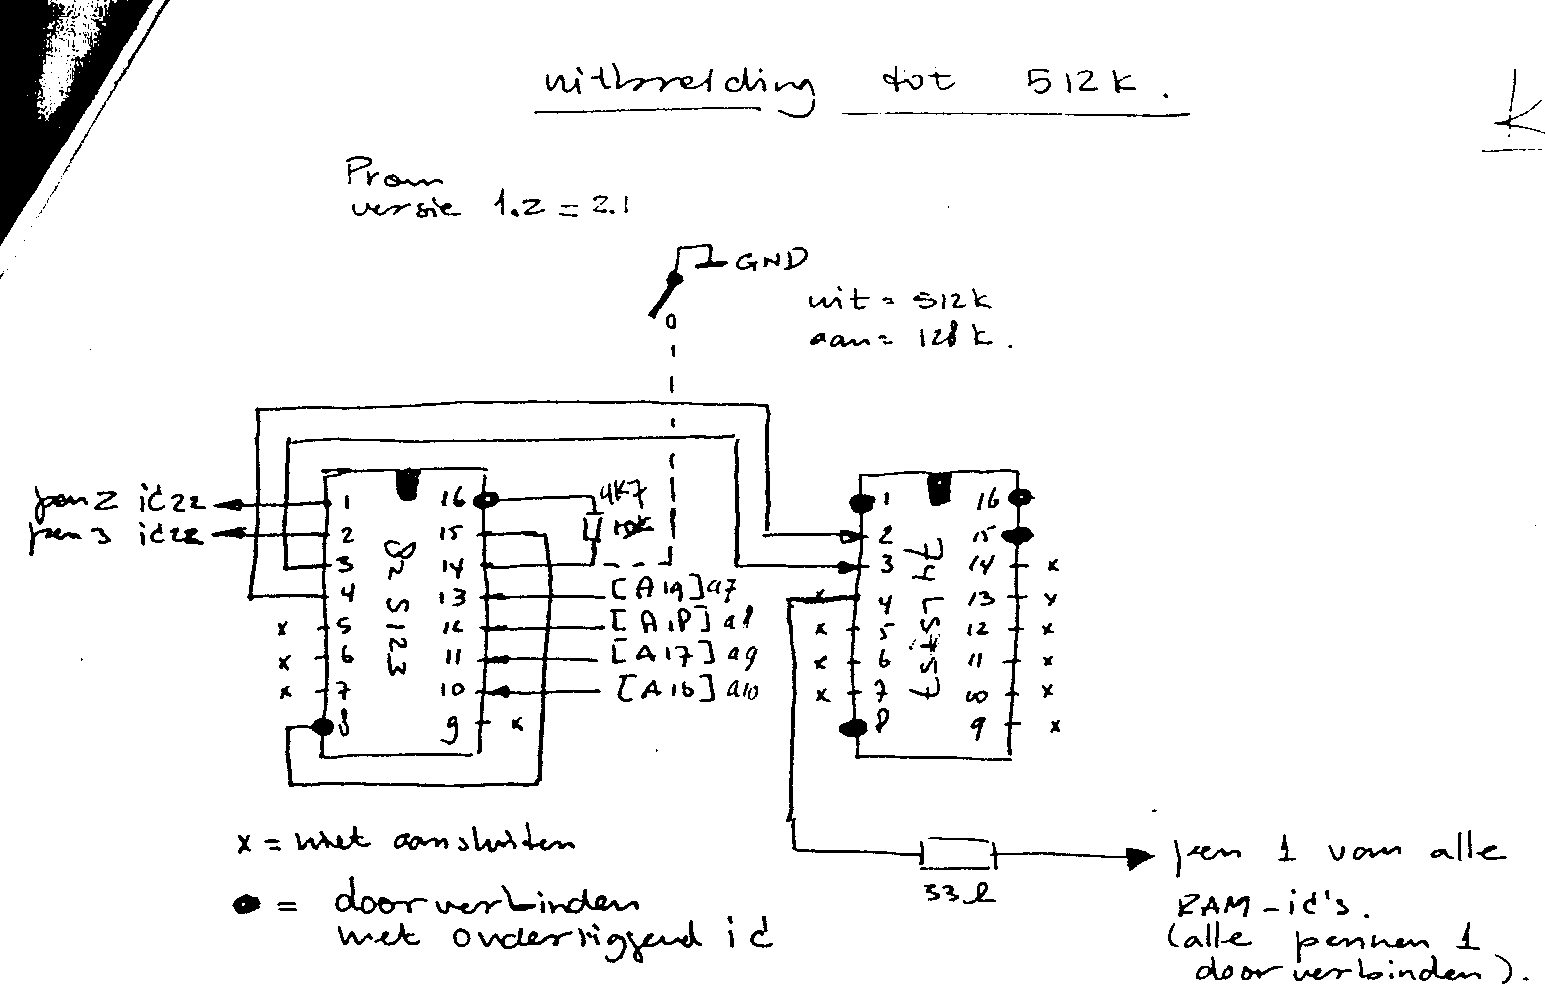 uitbreiding tot 512k.
K
Prom
versie 1.2 = 2.1
GND
uit = 512k
aan = 128k.
pen 2 ic22
pen 3 ic22
1 16 4K7
2 15
3 14
4 13 [A19] a7
x 5 12 [A18] a8
x 6 11 [A17] a9
x 7 10 [A16] a10
8 9 x
82S123
1 16
2 15
3 14 x
x 4 13 x
x 5 12 x
x 6 11 x
x 7 10 x
8 9 x
74LS157
x = niet aansluiten
33Ω
pen 1 van alle
RAM-ic's.
(alle pennen 1
doorverbinden).
= doorverbinden
met onderliggend ic